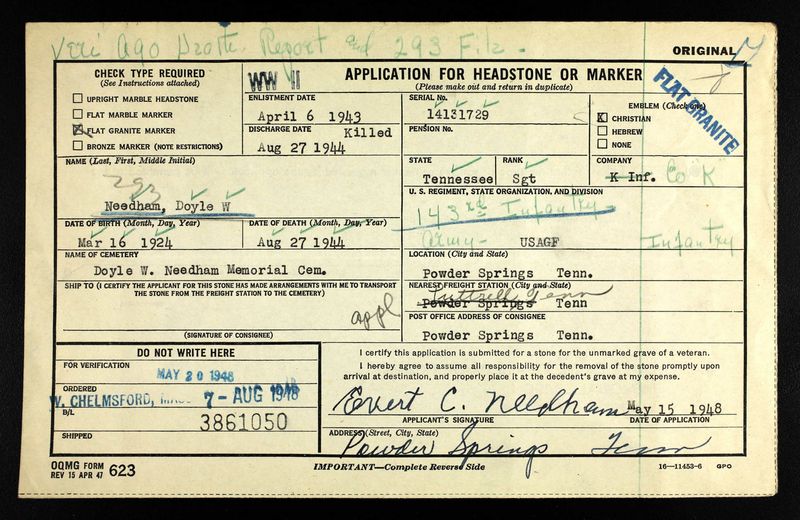 Veri Ago Death Report and 293 File -
ORIGINAL
CHECK TYPE REQUIRED
(See Instructions attached)
UPRIGHT MARBLE HEADSTONE
FLAT MARBLE MARKER
FLAT GRANITE MARKER
BRONZE MARKER (NOTE RESTRICTIONS)
WW II
APPLICATION FOR HEADSTONE OR MARKER
(Please make out and return in duplicate)
FLAT GRANITE
ENLISTMENT DATE
April 6 1943
DISCHARGE DATE Killed
Aug 27 1944
SERIAL No.
14131729
PENSION No.
EMBLEM (Check one)
X CHRISTIAN
HEBREW
NONE
STATE
Tennessee
RANK
Sgt
COMPANY
K Inf. Co "K"
NAME (Last, First, Middle Initial)
293
Needham, Doyle W
U. S. REGIMENT, STATE ORGANIZATION, AND DIVISION
143rd Infantry
Army - USAGF Infantry
DATE OF BIRTH (Month, Day, Year)
Mar 16 1924
DATE OF DEATH (Month, Day, Year)
Aug 27 1944
NAME OF CEMETERY
Doyle W. Needham Memorial Cem.
LOCATION (City and State)
Powder Springs Tenn.
SHIP TO (I CERTIFY THE APPLICANT FOR THIS STONE HAS MADE ARRANGEMENTS WITH ME TO TRANSPORT
THE STONE FROM THE FREIGHT STATION TO THE CEMETERY)
appl
(SIGNATURE OF CONSIGNEE)
NEAREST FREIGHT STATION (City and State)
Luttrell, Tenn
Powder Springs Tenn
POST OFFICE ADDRESS OF CONSIGNEE
Powder Springs Tenn.
DO NOT WRITE HERE
FOR VERIFICATION
MAY 20 1948
ORDERED
W. CHELMSFORD, 7-AUG 1948
B/L
3861050
SHIPPED
I certify this application is submitted for a stone for the unmarked grave of a veteran.
I hereby agree to assume all responsibility for the removal of the stone promptly upon
arrival at destination, and properly place it at the decedent's grave at my expense.
Evert C. Needham May 15 1948
APPLICANT'S SIGNATURE DATE OF APPLICATION
ADDRESS (Street, City, State)
Powder Springs Tenn
OQMG FORM
REV 15 APR 47 623
IMPORTANT—Complete Reverse Side
16—11453-6 GPO